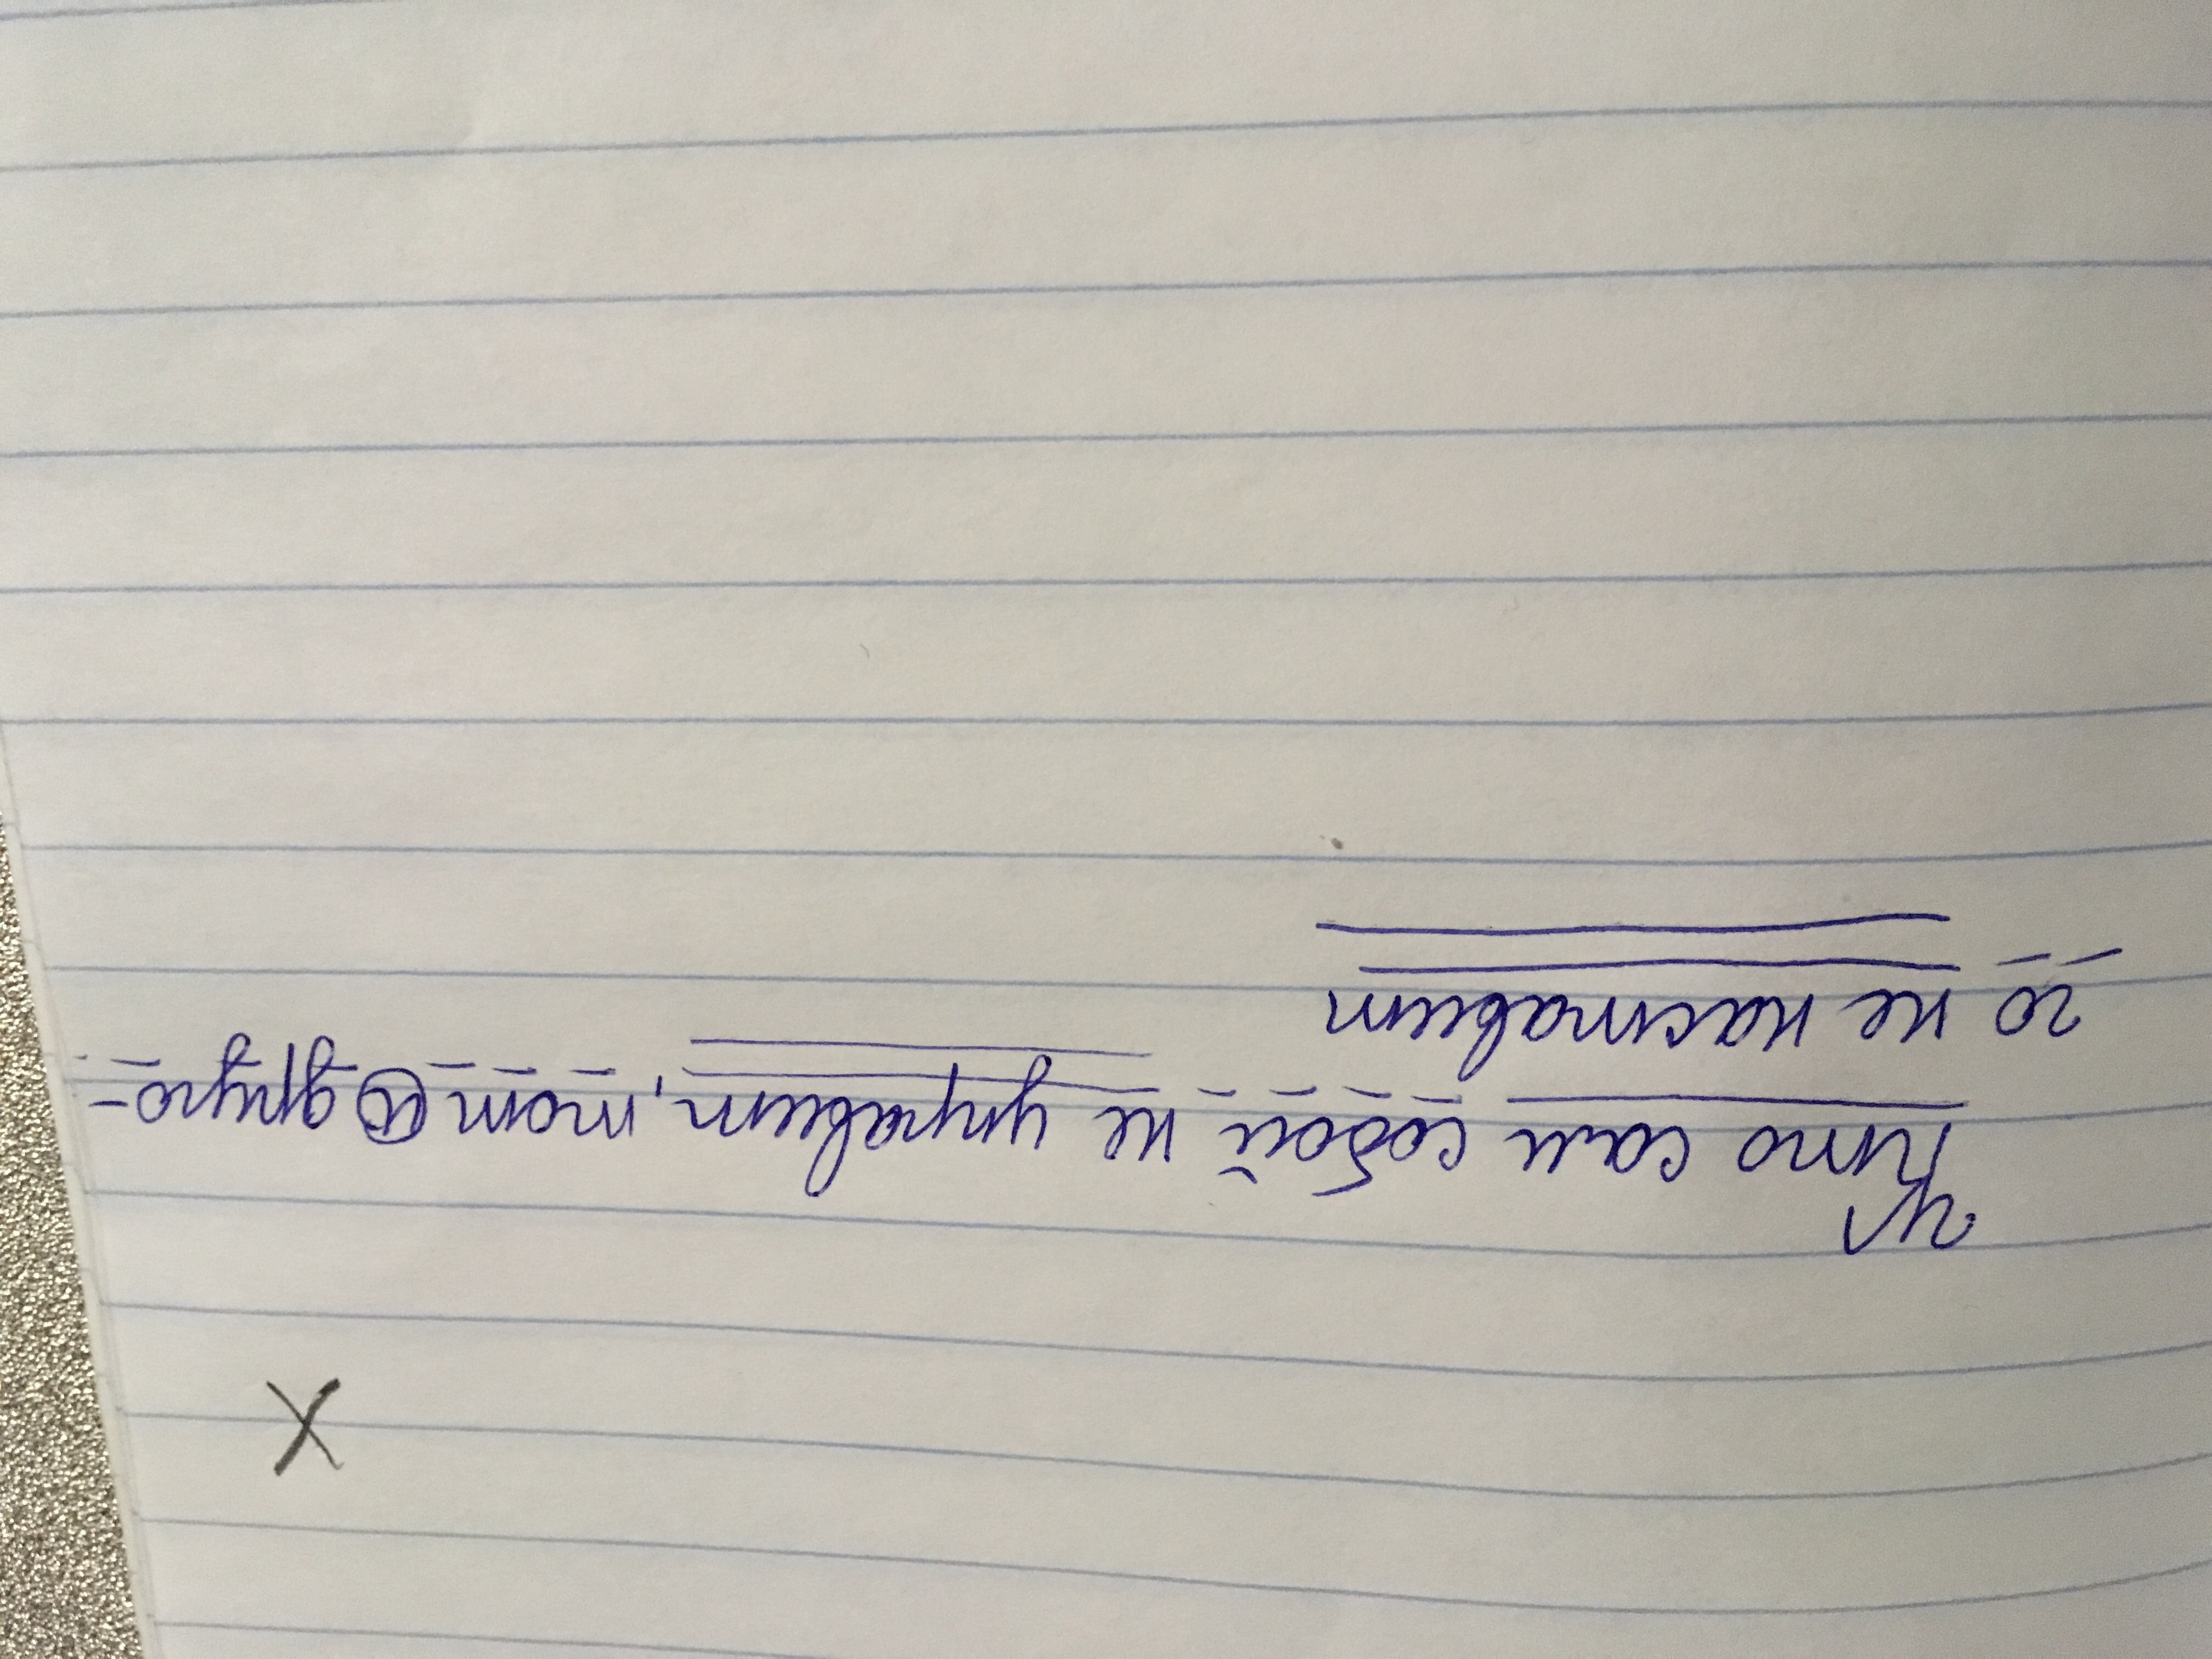 Кто сам собой не управит, тот и друго-
го не наставит
X